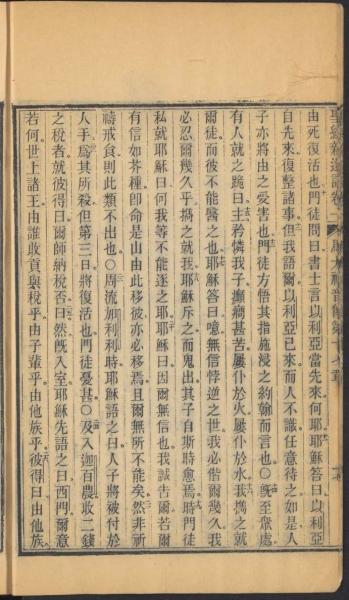 由死復活也門徒問曰書士言以利亞當先來何耶耶穌答曰以利亞
自先來復整諸事但我語爾以利亞已來而人不識任意待之如是人
子亦將由之受害也門徒方悟其指施浸之約翰而言也○既至眾處
有人就之跪曰主矜憐我子癲癎甚苦屢仆於火屢仆於水我攜之就
爾徒而彼不能醫之也耶穌答曰噫無信悖逆之世我必偕爾幾久我
必忍爾幾久乎攜之就我耶穌斥之而鬼出其子自斯時愈焉時門徒
私就耶穌曰何我等不能逐之耶耶穌曰因爾無信也我誠告爾若爾
有信如芥種卽命是山由此移彼亦必移焉且爾無所不能矣然非祈
禱戒食則此類不出也○周流加利利時耶穌語之曰人子將被付於
人手爲其所殺但第三日將復活也門徒憂甚○及入迦百農收二錢
之稅者就彼得曰爾師納稅否曰然旣入室耶穌先語之曰西門爾意
若何世上諸王由誰收貢與稅乎由子輩乎由他族乎彼得曰由他族